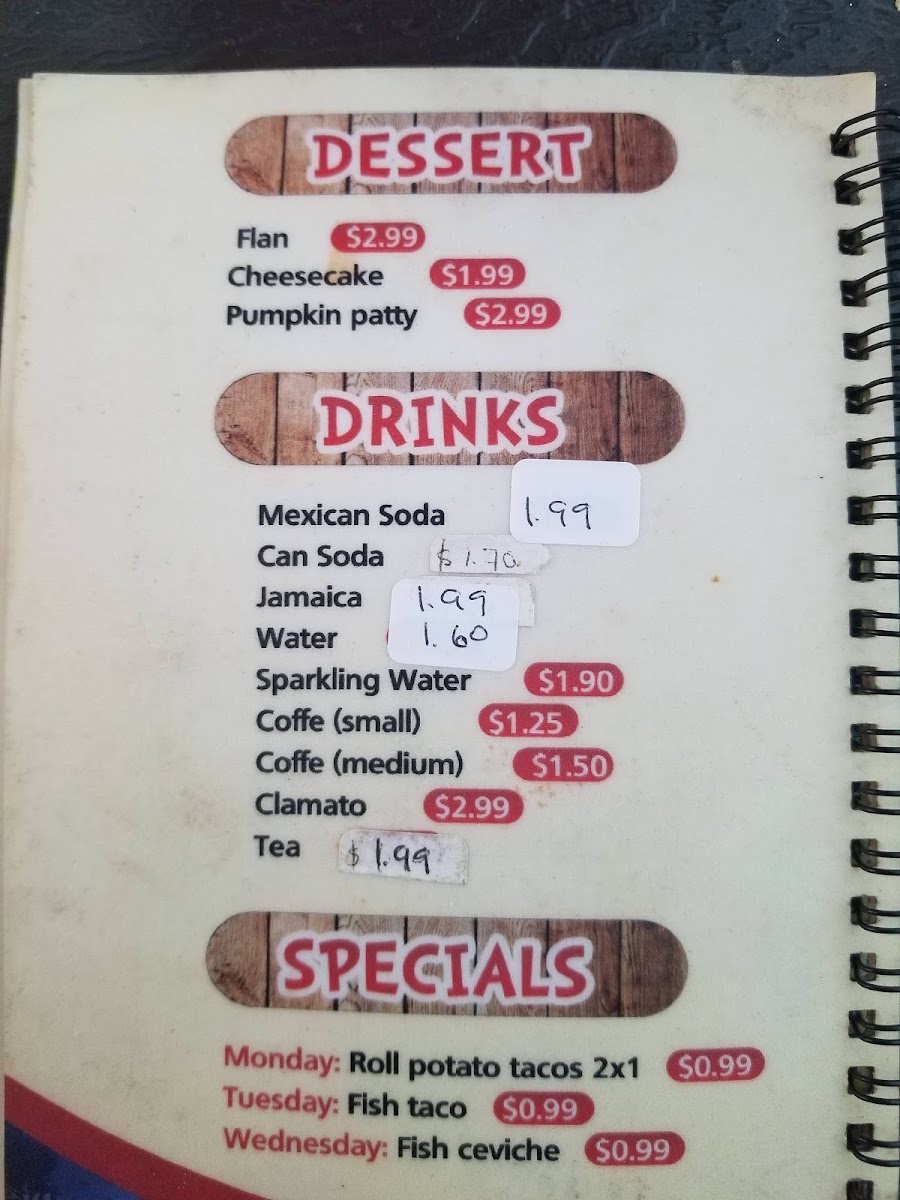 DESSERT
Flan $2.99
Cheesecake $1.99
Pumpkin patty $2.99
DRINKS
Mexican Soda 1.99
Can Soda $1.70
Jamaica 1.99
Water 1.60
Sparkling Water $1.90
Coffe (small) $1.25
Coffe (medium) $1.50
Clamato $2.99
Tea $1.99
SPECIALS
Monday: Roll potato tacos 2x1 $0.99
Tuesday: Fish taco $0.99
Wednesday: Fish ceviche $0.99